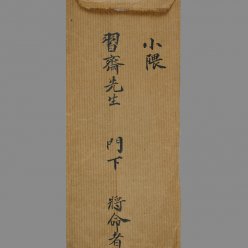 小隈
習齋先生 門下 將命者